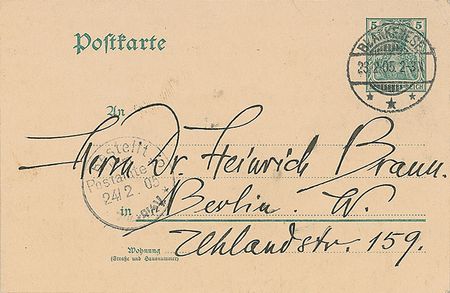 Postkarte
5 5
BLANKENESE
23.2.05.2-3N
REICH
An
Bestellt
Postamte
24/2.05
Herrn Dr. Heinrich Braun.
in Berlin. W.
Uhlandstr. 159.
Wohnung
(Straße und Hausnummer)